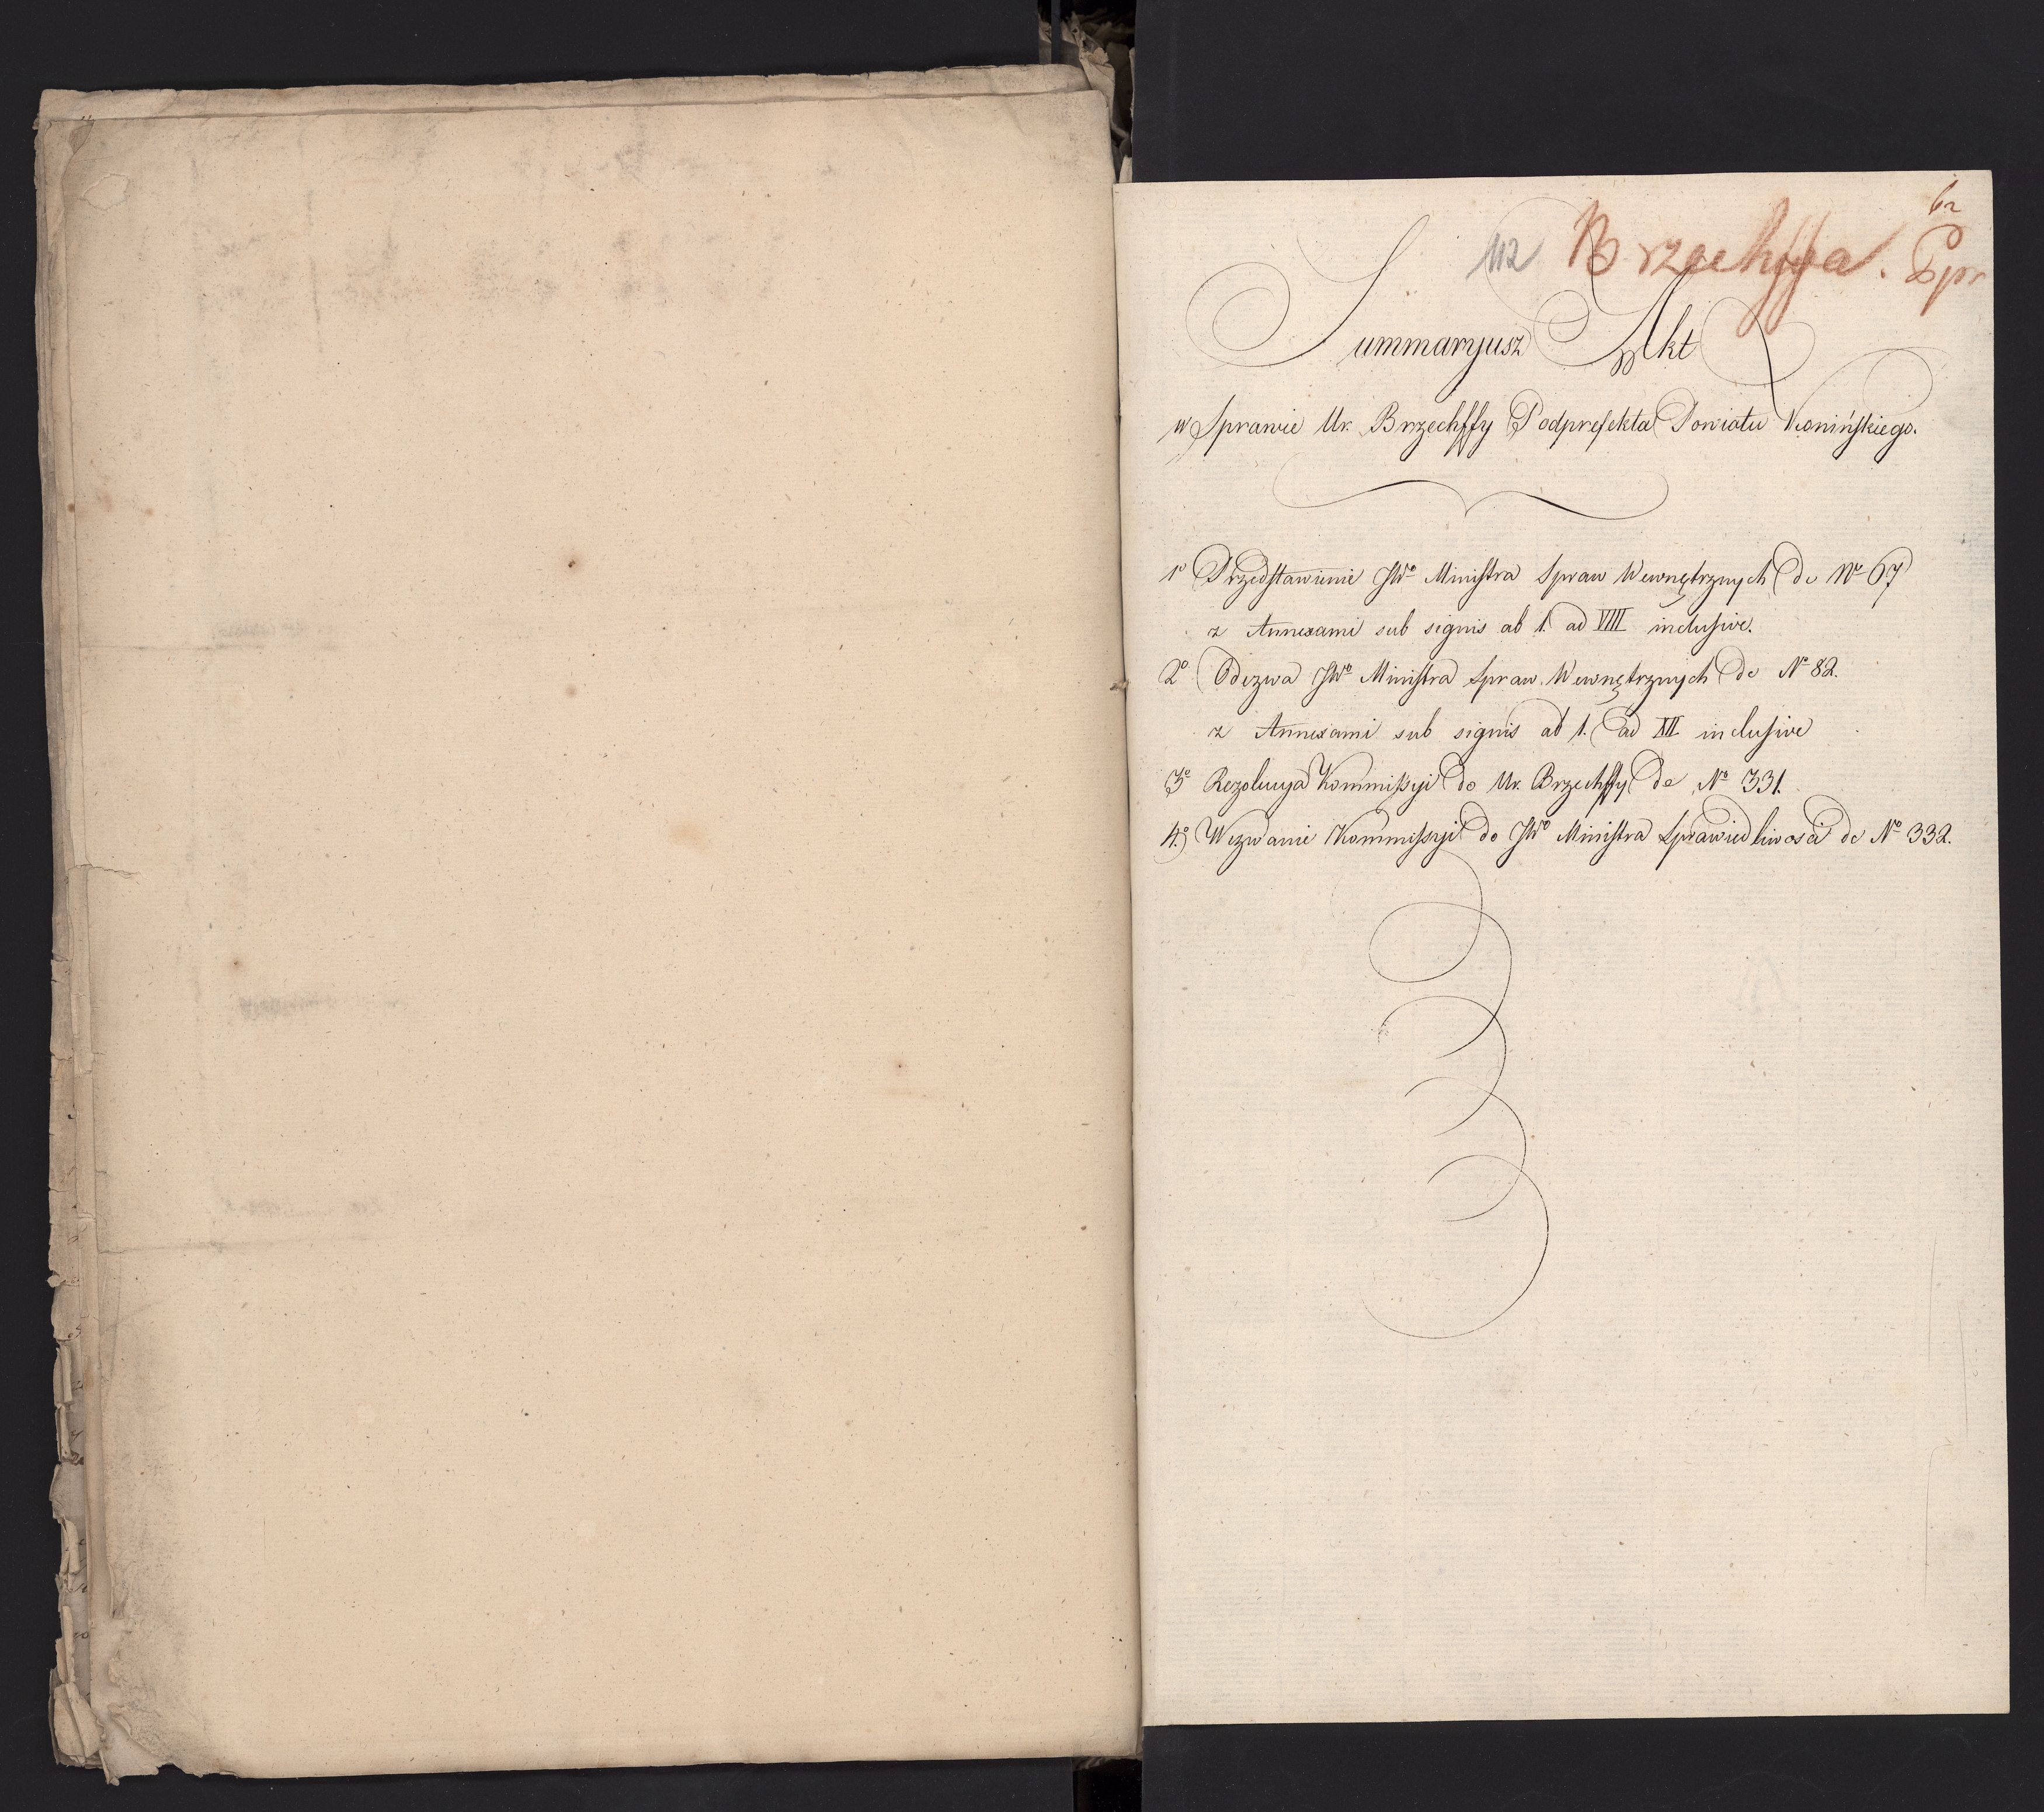 62
112 Brzechffa. Ppr
Summaryusz Akt
w Sprawie Ur. Brzechffy Podprefekta Powiatu Konińskiego.
1º Przedstawienie JWº Ministra Spraw Wewnętrznych de Nº 67
z Annexami sub signis ab 1. ad VIII inclusive.
2º Odezwa JWº Ministra Spraw Wewnętrznych de Nº 82.
z Annexami sub signis ab 1. ad XII inclusive
3º Rezolucya Kommissyi do Ur. Brzechffy de Nº 331.
4º) Wezwanie Kommissyi do JWº Ministra Sprawiedliwości de Nº 332.